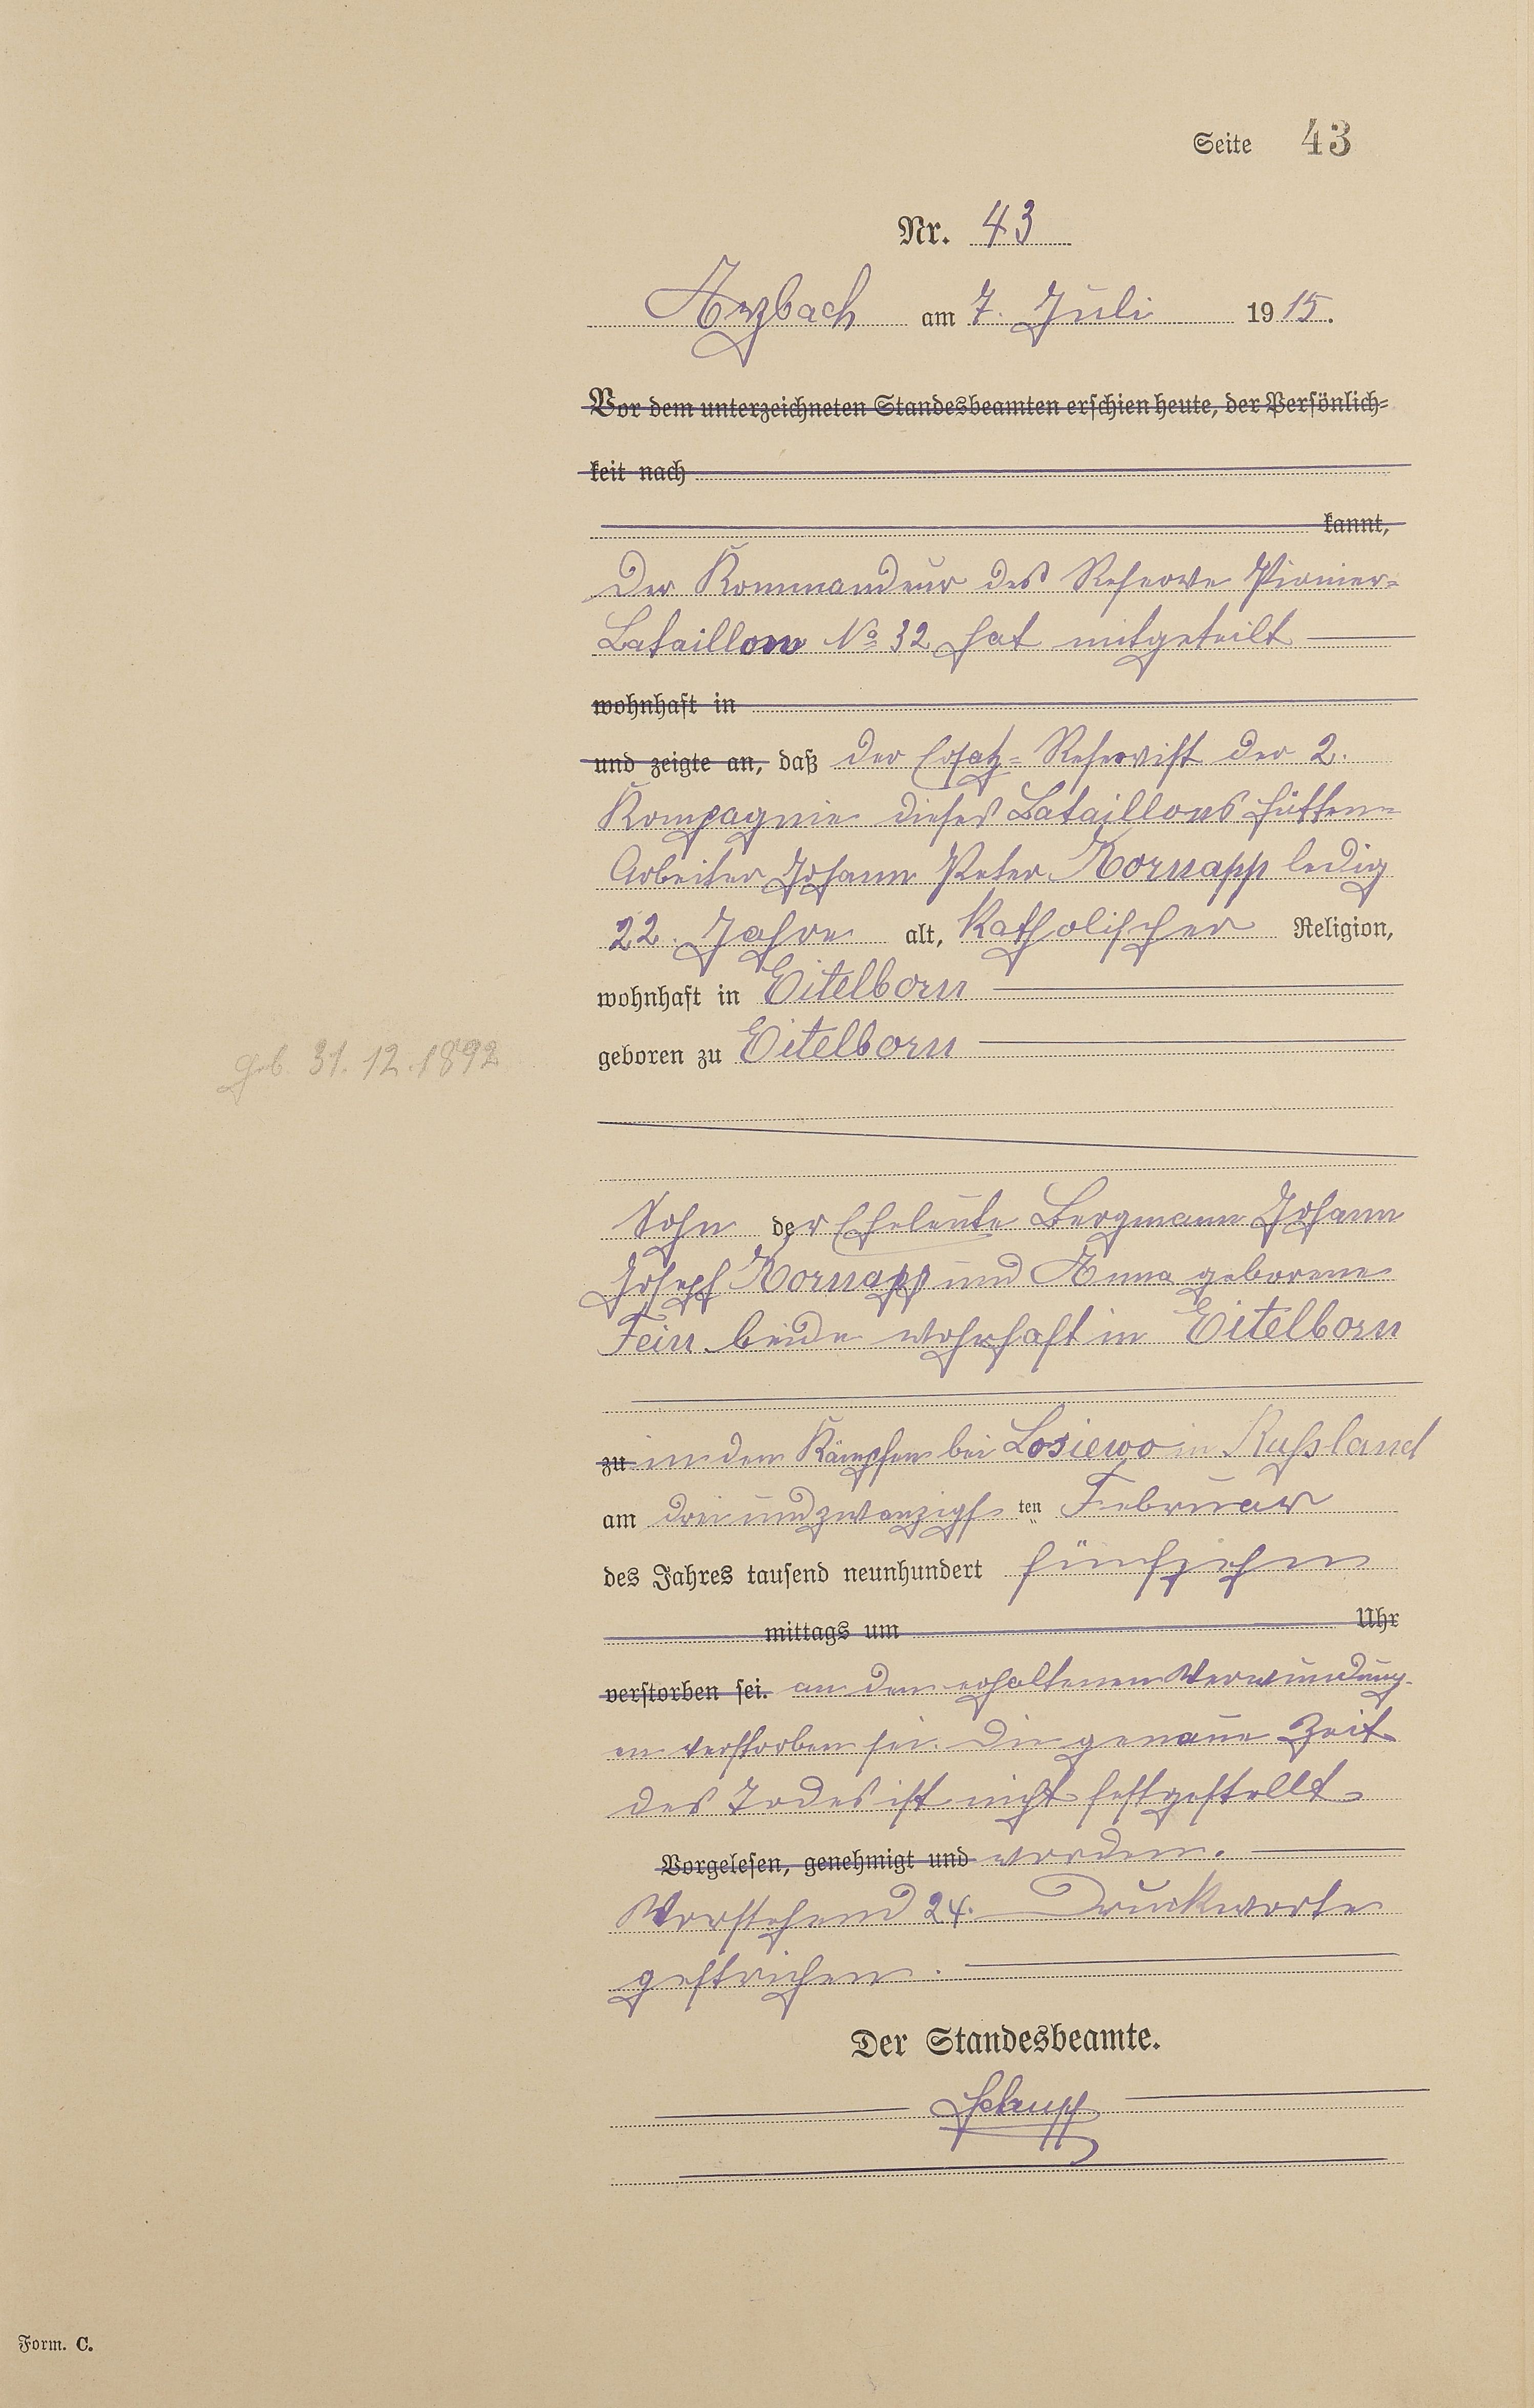 Seite 43
Nr. 43
Arzbach am 7. Juli 1915.
Vor dem unterzeichneten Standesbeamten erschien heute, der Persönlich=
keit nach
kannt,
Der Kommandeur des Reserve Pionier-
Bataillon No 32 hat mitgeteilt
wohnhaft in
und zeigte an, daß der Ersatz-Reservist der 2.
Kompagnie dieses Bataillons Hütten-
Arbeiter Johann Peter Kornapp ledig
22 Jahre alt, Katholischer Religion,
wohnhaft in Eitelborn
geb. 31.12.1892
geboren zu Eitelborn
Sohn der Eheleute Bergmann Johann
Joseph Kornapp und Anna geborene
Fein beide wohnhaft in Eitelborn
zu in den Kämpfen bei Losiewo in Russland
am dreiundzwanzigsten Februar
des Jahres tausend neunhundert fünfzehn
mittags um Uhr
verstorben sei. an den erhaltenen Verwundung-
en verstorben sei. Die genaue Zeit
des Todes ist nicht festgestellt
Vorgelesen, genehmigt und worden.
Vorstehend 24. Druckworte
gestrichen.
Der Standesbeamte.
Form. C.